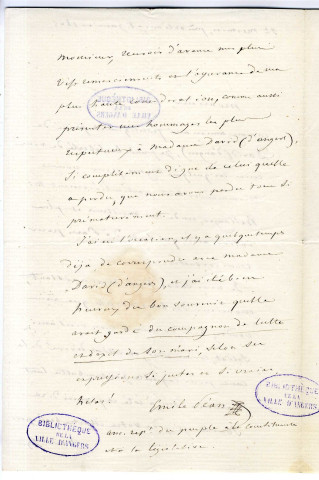 Monsieur, recevoir d'avance mes plus
vifs remerciements et l'assurance de ma
plus haute considération, comme aussi
présenter mes hommages les plus
respectueux à Madame David (d'angers),
si complètement digne de celui qu'elle
a perdu, que nous avons perdu tous si
prématurément.
J'ai eu l'occasion, il y a quelque temps
déjà, de correspondre avec madame
David (d'angers), et j'ai été bien
heureux du bon souvenir qu'elle
avait gardé du compagnon de lutte
et d'exil de son mari, selon ses
expressions si justes et si vraies.
Emile Péan
anc. rept. du peuple à la constituante
et à la législative.
BIBLIOTHÈQUE
DE LA
VILLE D'ANGERS
BIBLIOTHÈQUE
DE LA
VILLE D'ANGERS
BIBLIOTHÈQUE
DE LA
VILLE D'ANGERS